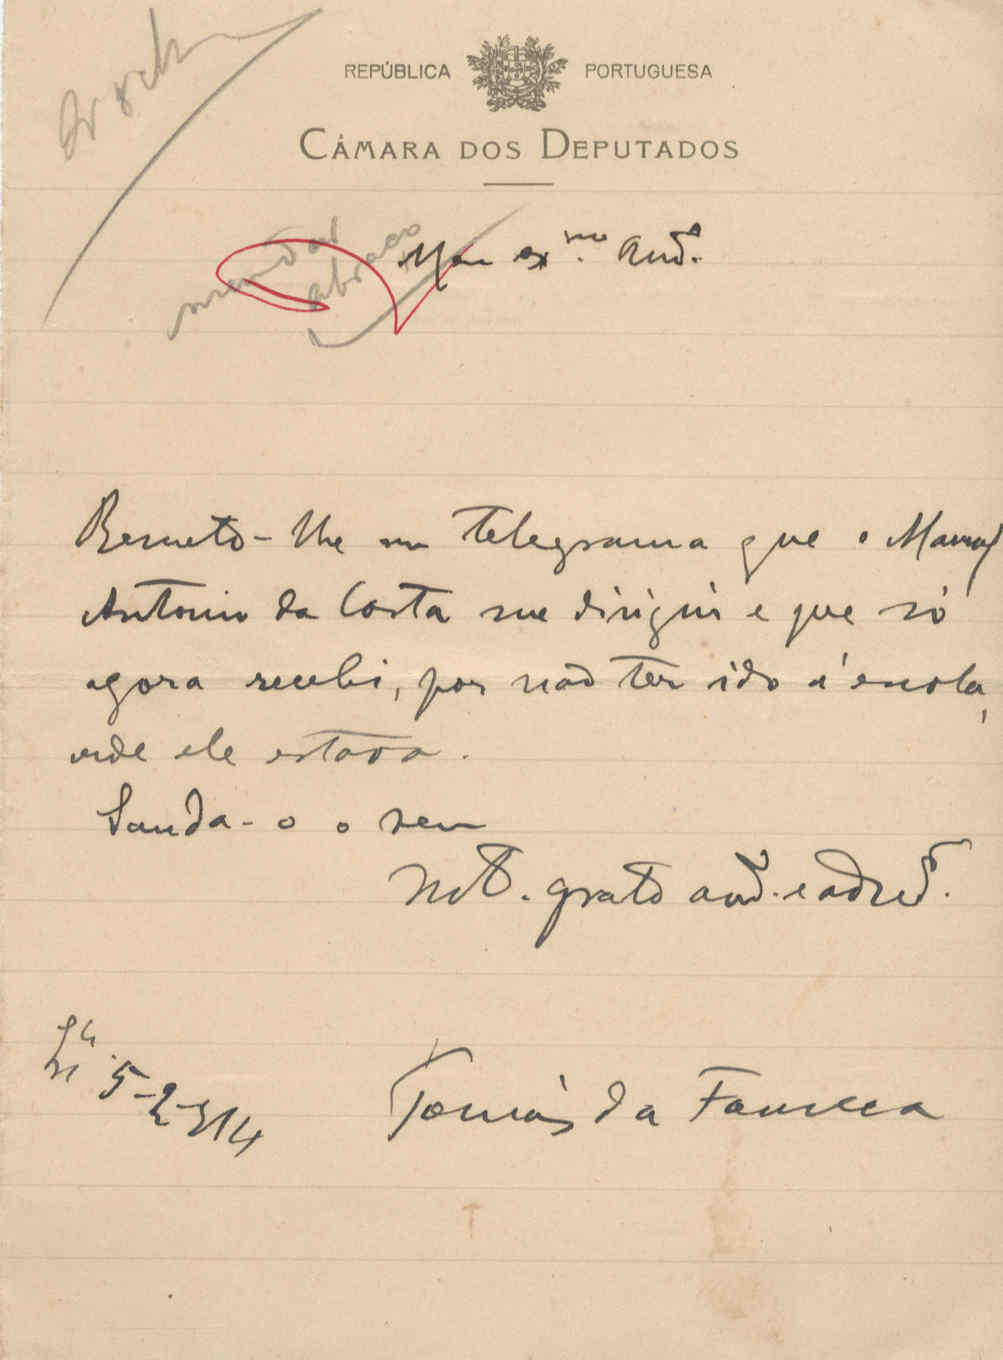 REPÚBLICA PORTUGUESA
CÂMARA DOS DEPUTADOS
mandar
abraço
Meu exmo. Amº.
Remeto-lhe um telegrama que o Manuel
Antonio da Costa me dirigiu e que só
agora recebi, por não ter ido á escola,
onde ele estava.
Sauda-o o seu
mtº. grato amº. e admdº.
5-2-914
Tomás da Fonseca